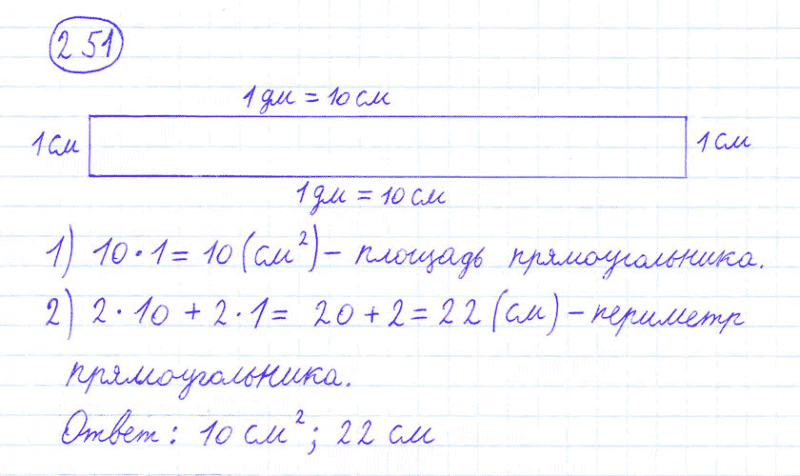 251
1 дм = 10 см
1 см
1 см
1 дм = 10 см
1) 10 · 1 = 10 (см²) – площадь прямоугольника.
2) 2 · 10 + 2 · 1 = 20 + 2 = 22 (см) – периметр
прямоугольника.
Ответ: 10 см²; 22 см